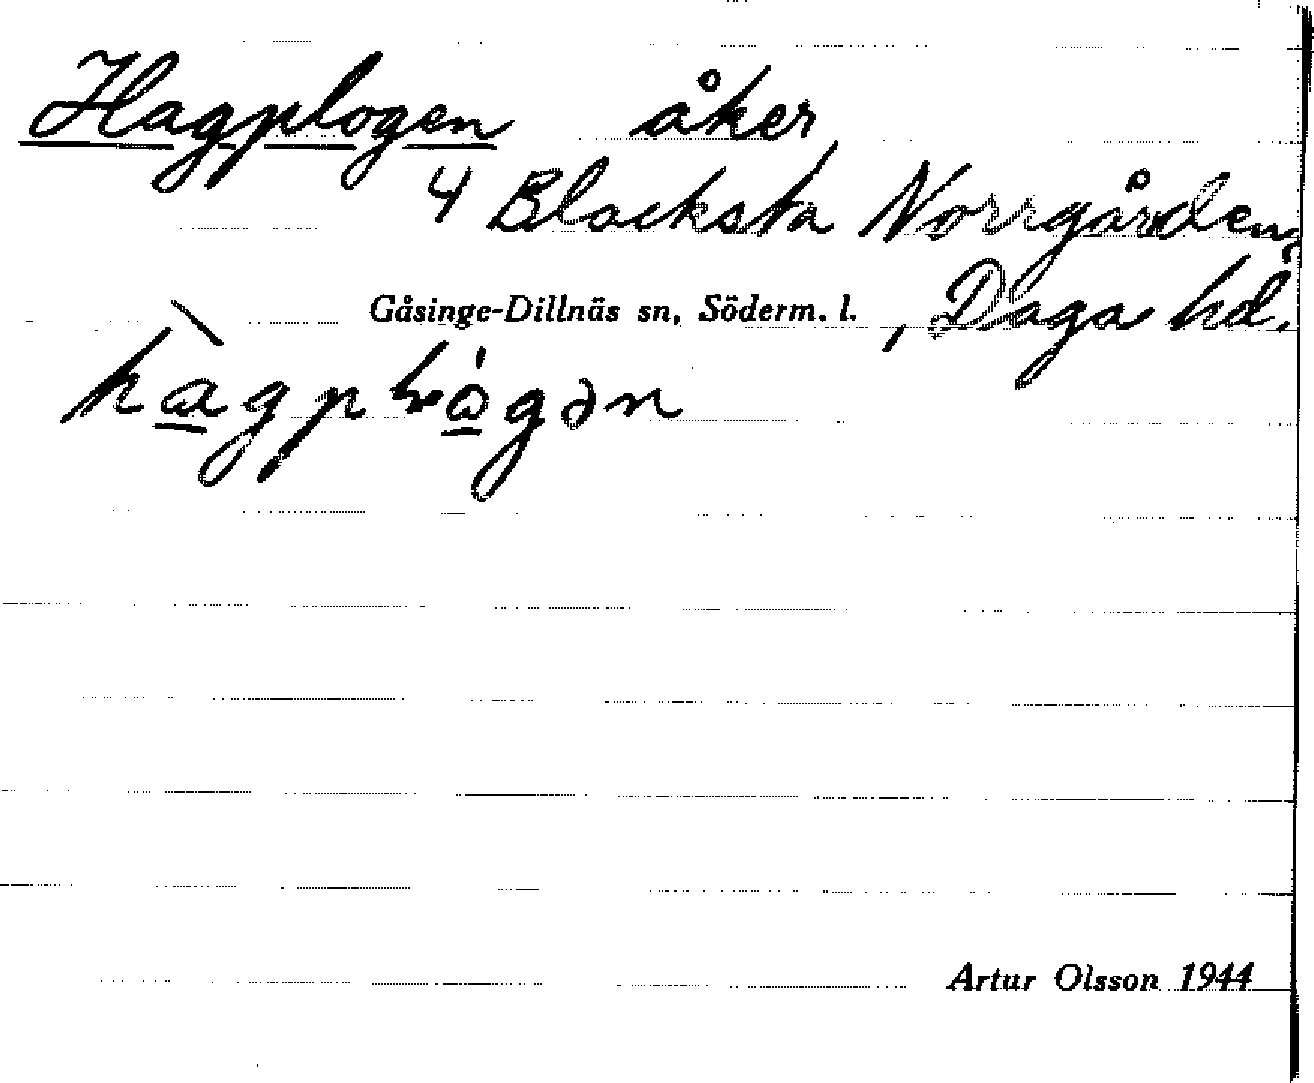 Hagplogen åker,
4 Blacksta Norrgården,
Gåsinge-Dillnäs sn, Söderm. l. , Daga hd.
Artur Olsson 1944